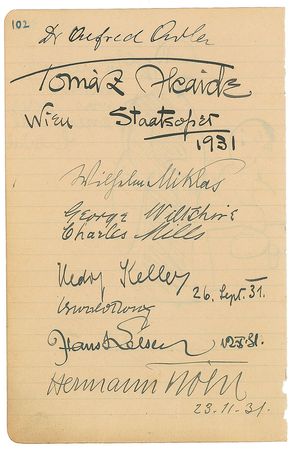 102
Dr Alfred Adler
Tomáz Alcaide
Wien Staatsoper
1931
Wilhelm Miklas
George Wiltshire
Charles Mills
Hedy Kelley
26. Sept. 31.
Hans Kelsen
Hermann Köhl
23.11.31.